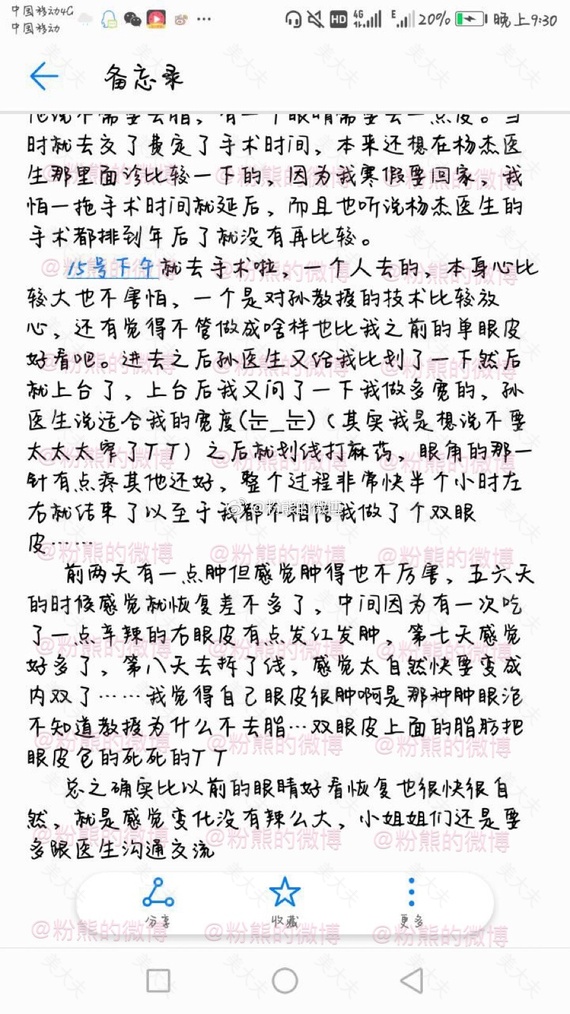 中国移动4G
中国移动
HD 4G E 20% 晚上9:30
备忘录
他说不需要去脂，有一个眼睛需要去一点皮。当
时就去交了费定了手术时间，本来还想在杨杰医
生那里面诊比较一下的，因为我寒假要回家，我
怕一拖手术时间就延后，而且也听说杨杰医生的
手术都排到年后了就没有再比较。
15号下午就去手术啦，一个人去的，本身心比
较大也不害怕，一个是对孙教授的技术比较放
心，还有觉得不管做成啥样也比我之前的单眼皮
好看吧。进去之后孙医生又给我比划了一下然后
就上台了，上台后我又问了一下我做多宽的，孙
医生说适合我的宽度(눈_눈)（其实我是想说不要
太太太窄了TT）之后就划线打麻药，眼角的那一
针有点疼其他还好，整个过程非常快半个小时左
右就结束了以至于我都不相信我做了个双眼
皮……
前两天有一点肿但感觉肿得也不厉害，五六天
的时候感觉就恢复差不多了，中间因为有一次吃
了一点辛辣的右眼皮有点发红发肿，第七天感觉
好多了，第八天去拆了线，感觉太自然快要变成
内双了……我觉得自己眼皮很肿啊是那种肿眼泡
不知道教授为什么不去脂…双眼皮上面的脂肪把
眼皮包的死死的TT
总之确实比以前的眼睛好看恢复也很快很自
然，就是感觉变化没有辣么大，小姐姐们还是要
多跟医生沟通交流
分享 收藏 更多
@粉熊的微博
美大夫